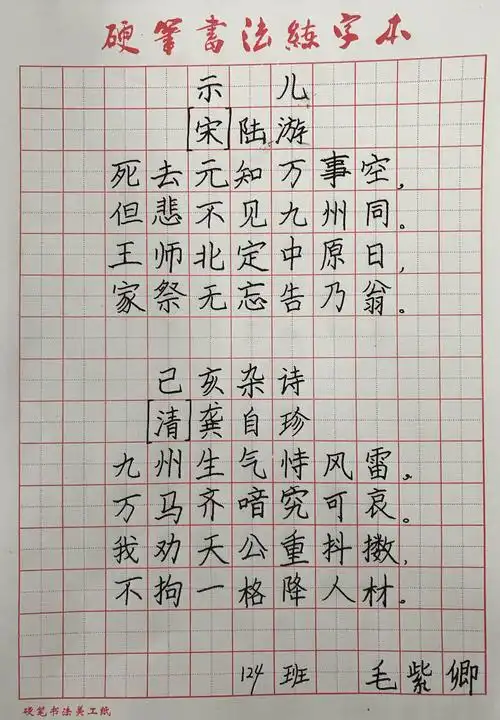 硬笔书法练字本
示儿
[宋]陆游
死去元知万事空,
但悲不见九州同。
王师北定中原日,
家祭无忘告乃翁。
己亥杂诗
[清]龚自珍
九州生气恃风雷,
万马齐喑究可哀。
我劝天公重抖擞,
不拘一格降人材。
124班 毛紫卿
硬笔书法美工纸